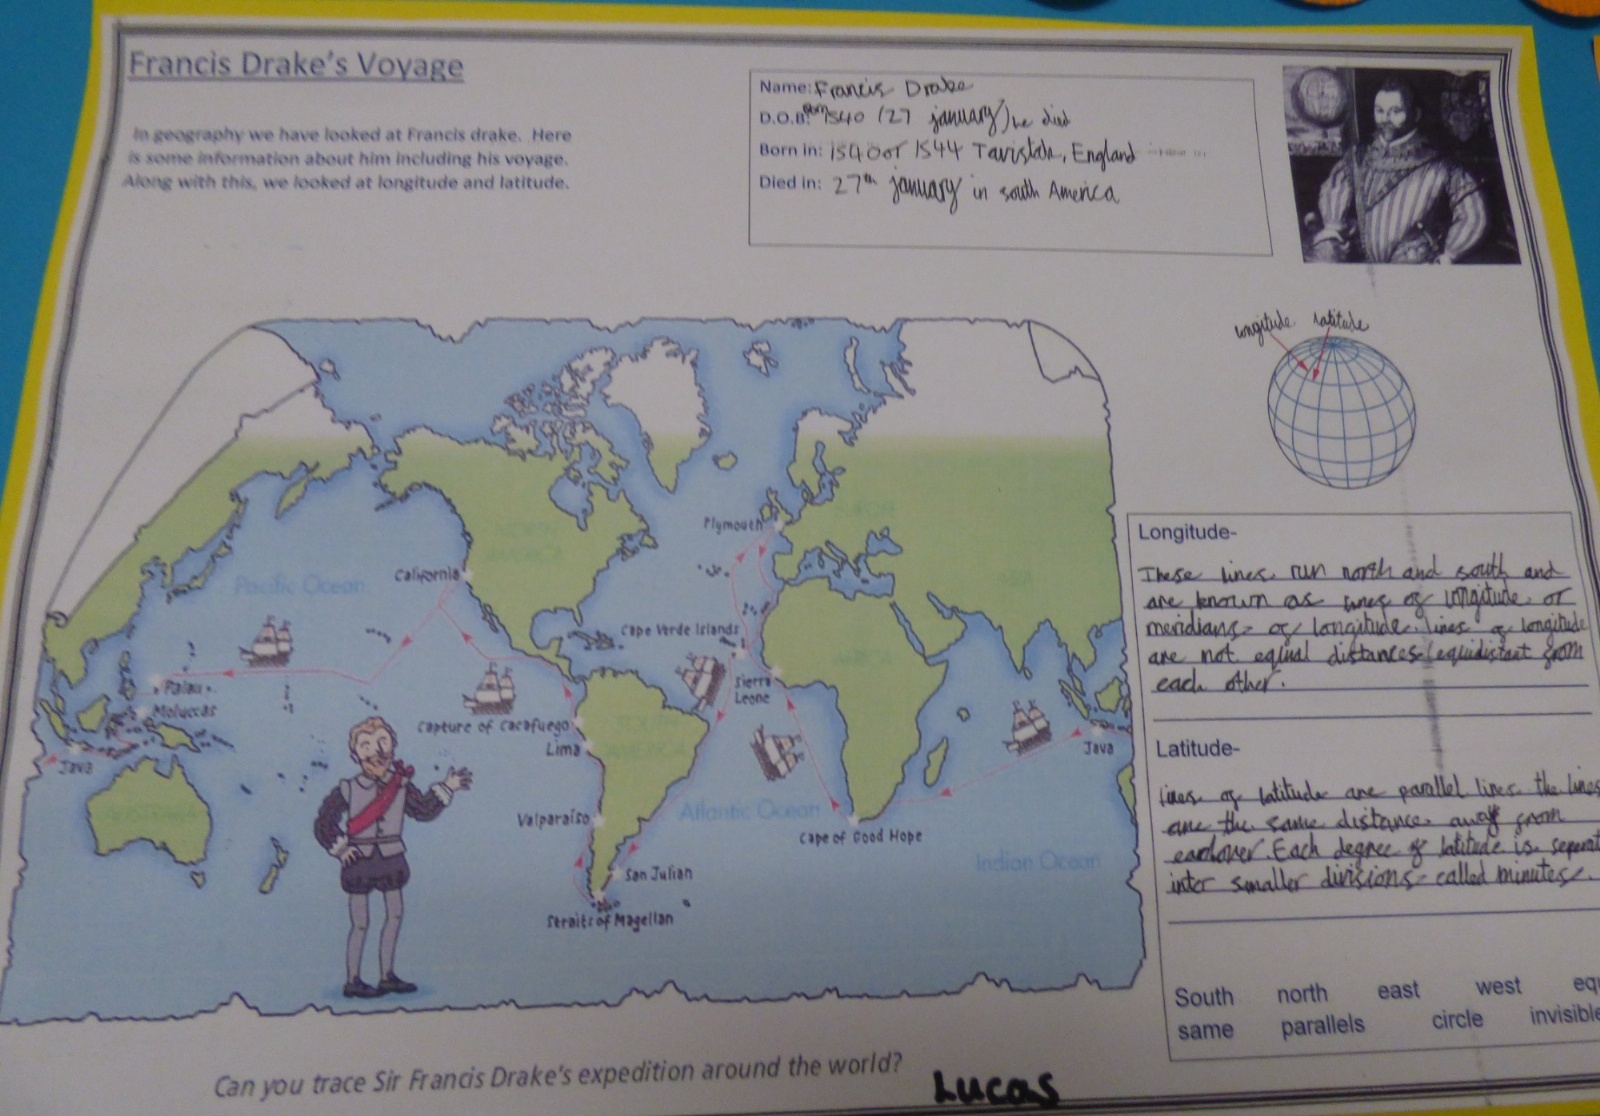 Francis Drake's Voyage
In geography we have looked at Francis drake. Here
is some information about him including his voyage.
Along with this, we looked at longitude and latitude.
Name: Francis Drake
D.O.B: Born 1540 (27 january) he died
Born in: 1540 or 1544 England
Died in: 27th january in south America
longitude latitude
Plymouth
California
Pacific Ocean
Cape Verde Islands
Sierra
Leone
Palau
Moluccas
Capture of Cacafuego
Lima
Java
Java
Valparaiso
Atlantic Ocean
Cape of Good Hope
Indian Ocean
San Julian
Straits of Magellan
Longitude-
These lines run north and south and
are known as lines of longitude or
meridians of longitude. lines of longitude
are not equal distances (equidistant from
each other.
Latitude-
Lines of latitude are parallel lines the lines
are the same distance away from
Each degree of latitude is
inter smaller divisions called minutes.
South north east west
same parallels circle invisible
Can you trace Sir Francis Drake's expedition around the world?
Lucas